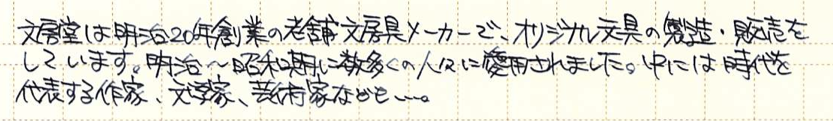 文房堂は明治20年創業の老舗文房具メーカーで、オリジナル文具の製造・販売を
しています。明治〜昭和期に数多くの人々に愛用されました。中には時代を
代表する作家、文学家、芸術家なども…。